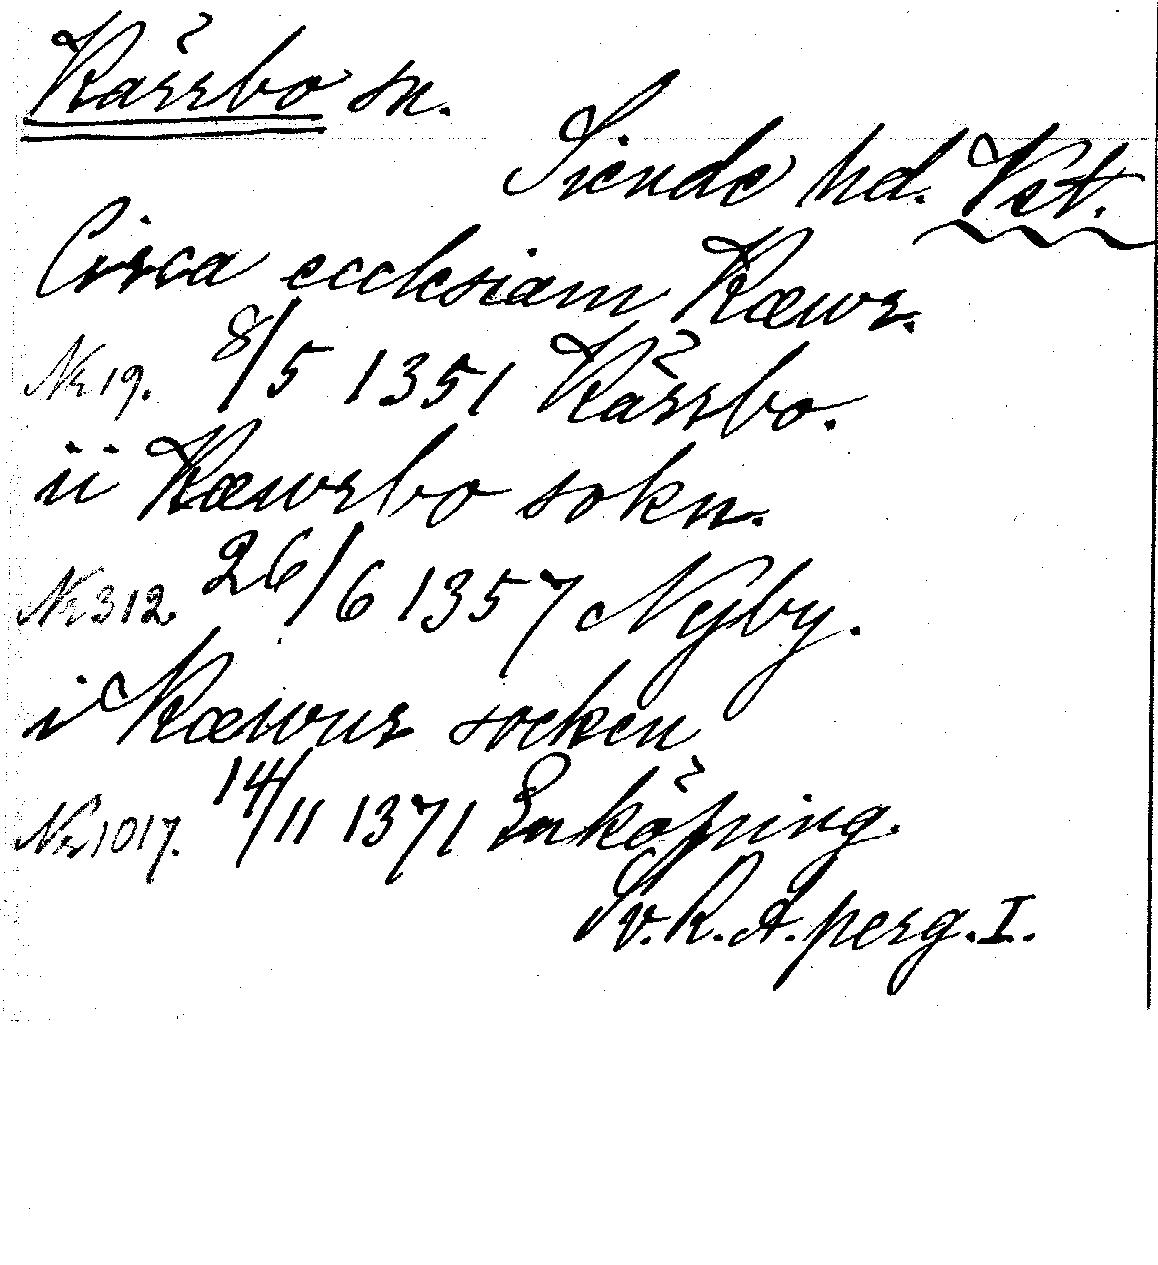 Kärrbo sn.
Siende hd. Vst.
Circa ecclesiam Kæwr.
Nr 19. 8/5 1351 Kärrbo.
ii Kæwrbo sokn.
Nr 312. 26/6 1357 Nyby.
i Kæwur socken
Nr 1017. 14/11 1371 Enköping.
Sv. R. A. perg. I.